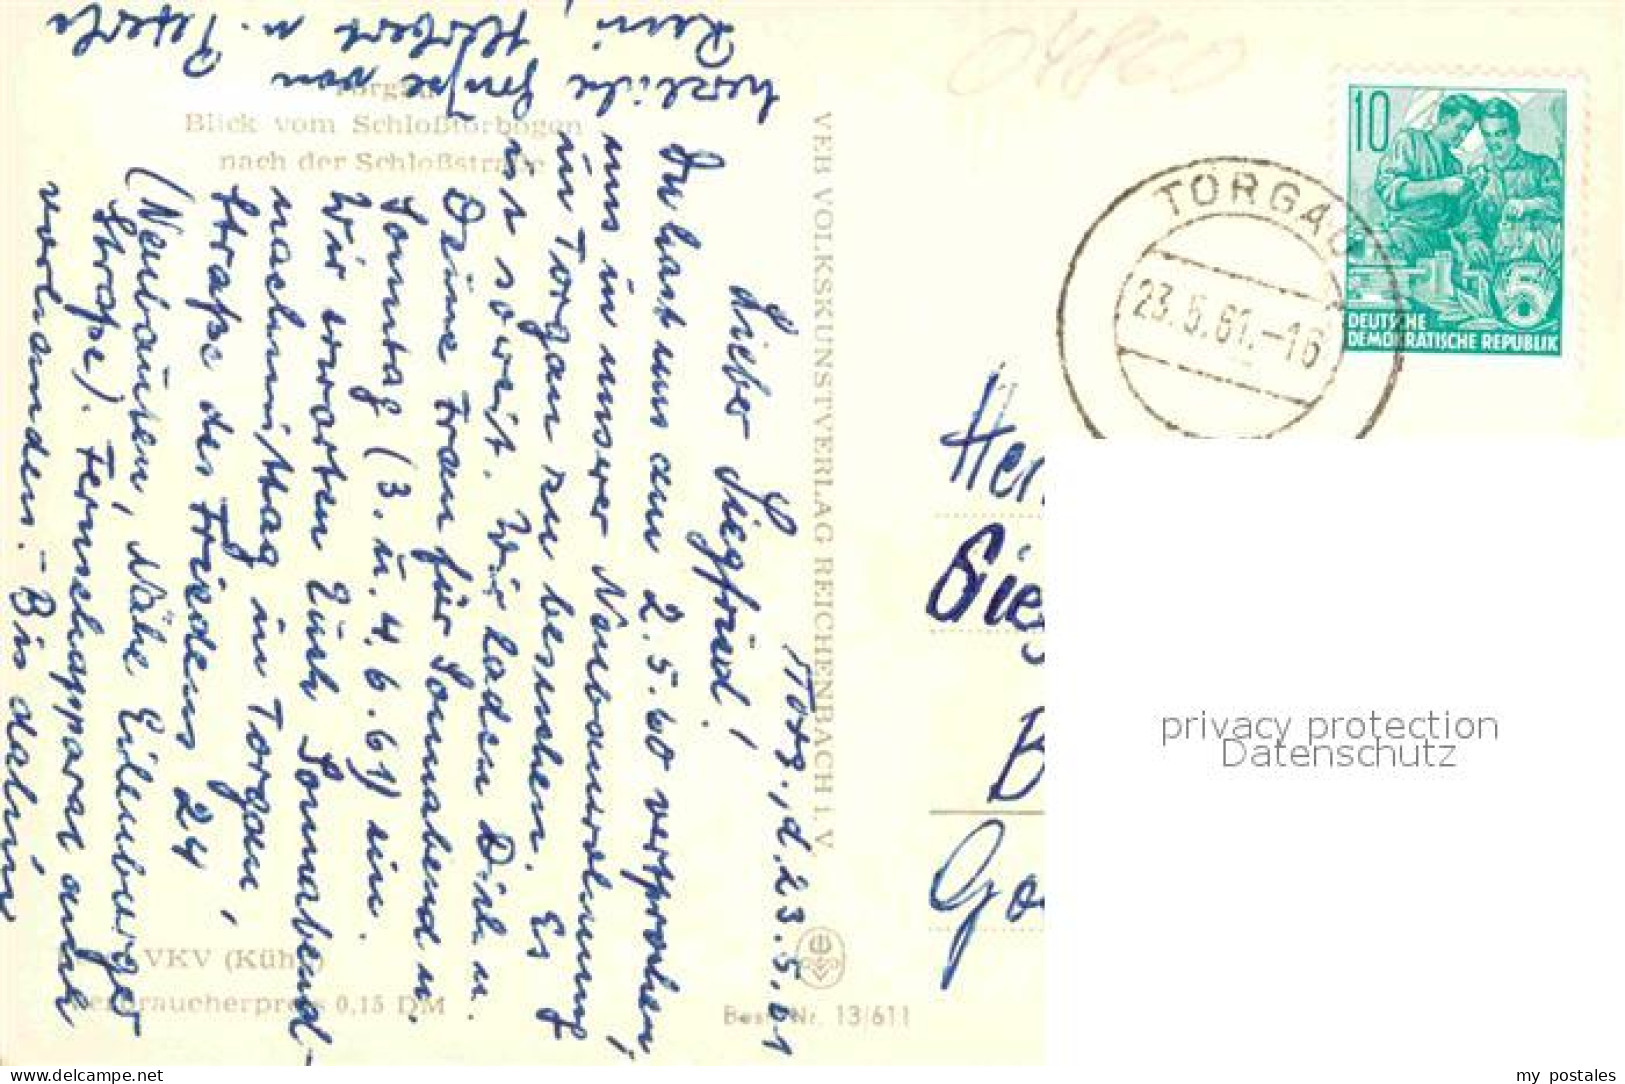 Torg., d. 23.5.61
Lieber Siegfried!
Du hast uns am 2.5.60 versprochen,
uns in unserer Neubauwohnung
in Torgau zu besuchen. Es
ist soweit. Wir laden Dich u.
Deine Frau für Sonnabend u.
Sonntag (3. u. 4.6.61) ein.
Wir erwarten Euch Sonnabend-
nachmittag in Torgau,
Straße des Friedens 24
(Neubauten, Nähe Eilenburger
Straße). Fernsehapparat auch
vorhanden. - Bis dahin
herzliche Grüße von
Reni, Herbert u. Peterle
Torgau
Blick vom Schloßtorbogen
nach der Schloßstraße
VKV (Kühn)
Verbraucherpreis 0,15 DM
VEB VOLKSKUNSTVERLAG REICHENBACH i. V.
Best.-Nr. 13/611
04860
TORGAU
23.5.61.-16
10
5
DEUTSCHE
DEMOKRATISCHE REPUBLIK
Her
Sieg
B
Go
privacy protection
Datenschutz
www.ansichtskartenversand.com
my postales